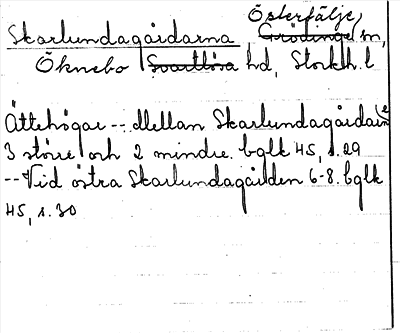 Österfälje
Skarlundagårdarna Grödinge sn,
Öknebo Svartlösa hd, Stockh. l
Ättehögar -- Mellan Skarlundagårdarne
3 större och 2 mindre. bglk 45, s. 29
-- Vid östra Skarlundagården 6-8. bglk
45, s. 30